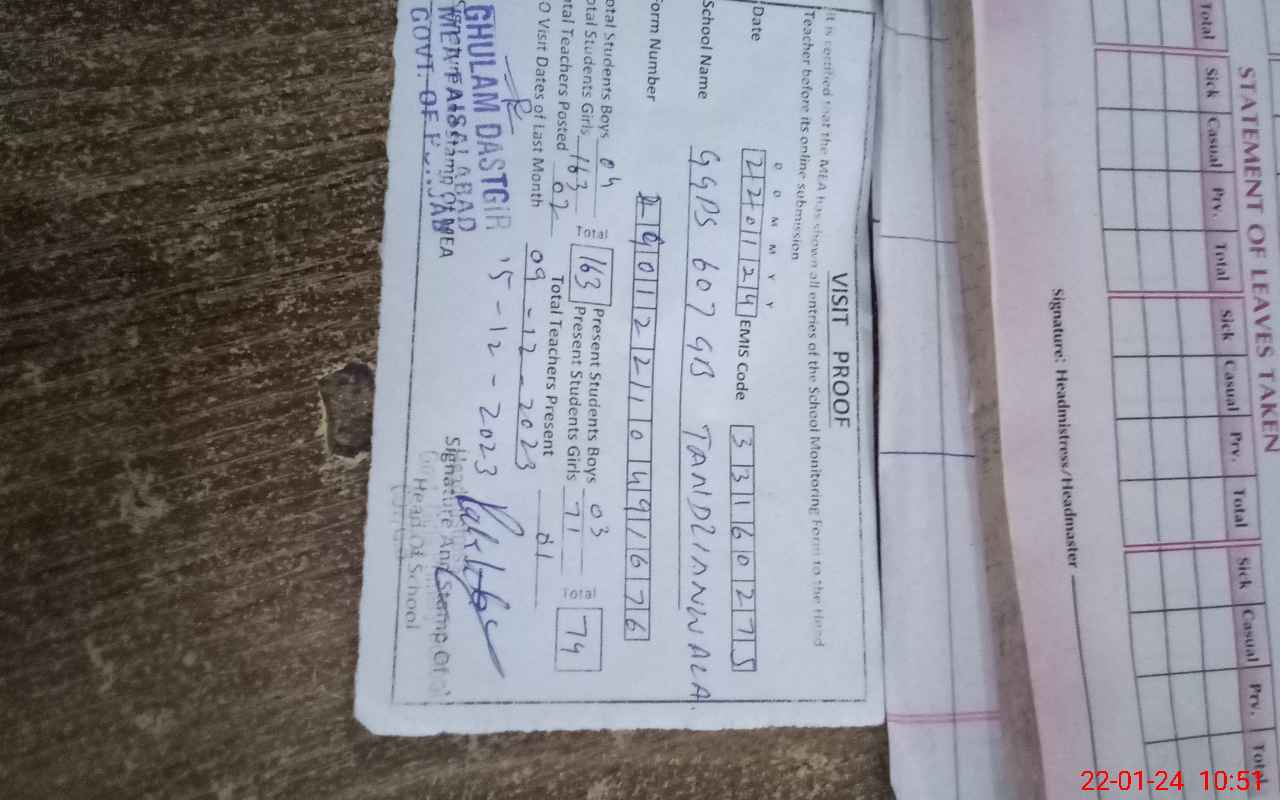 VISIT PROOF
It is certified that the MEA has shown all entries of the School Monitoring Form to the Head
Teacher before its online submission
D D M M Y Y
Date 220124 EMIS Code 33160275
School Name GGPS 607 GB TANDLIANWALA.
Form Number 90122110491676
Total Students Boys 04 Present Students Boys 03
Total Students Girls 163 Total 163 Present Students Girls 71 Total 74
Total Teachers Posted 02 Total Teachers Present 01
O Visit Dates of Last Month 09-12-2023
15-12-2023
GHULAM DASTGIR
MEA FAISALABAD
GOVT: OF PUNJAB
Stamp Of MEA
Signature And Stamp Of
Head Of School
STATEMENT OF LEAVES TAKEN
Total Sick Casual Prv. Total Sick Casual Prv. Total Sick Casual Prv. Total
Signature: Headmistress/Headmaster
22-01-24 10:51